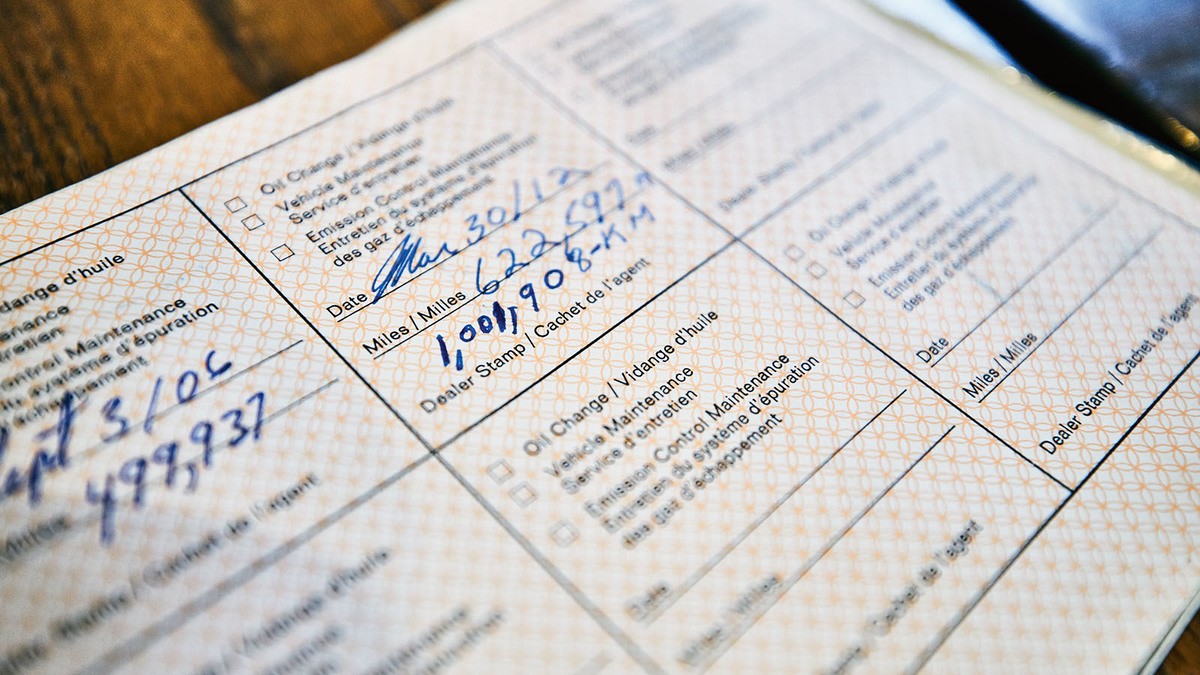 Oil Change / Vidange d'huile
Vehicle Maintenance
Service d'entretien
Emission Control Maintenance
Entretien du système d'épuration
des gaz d'échappement
Date Mar 30/12
Miles / Milles 622,597
1,001,908-KM
Dealer Stamp / Cachet de l'agent
d'huile
Maintenance
système d'épuration
Sept 3/06
499,937
Cachet de l'agent
Oil Change / Vidange d'huile
Vehicle Maintenance
Service d'entretien
Emission Control Maintenance
Entretien du système d'épuration
des gaz d'échappement
Date
Miles / Milles
Cachet de l'agent
Oil Change / Vidange d'huile
Vehicle Maintenance
Service d'entretien
Emission Control Maintenance
Entretien du système d'épuration
des gaz d'échappement
Date
Miles / Milles
Dealer Stamp / Cachet de l'agent
Vidange d'huile